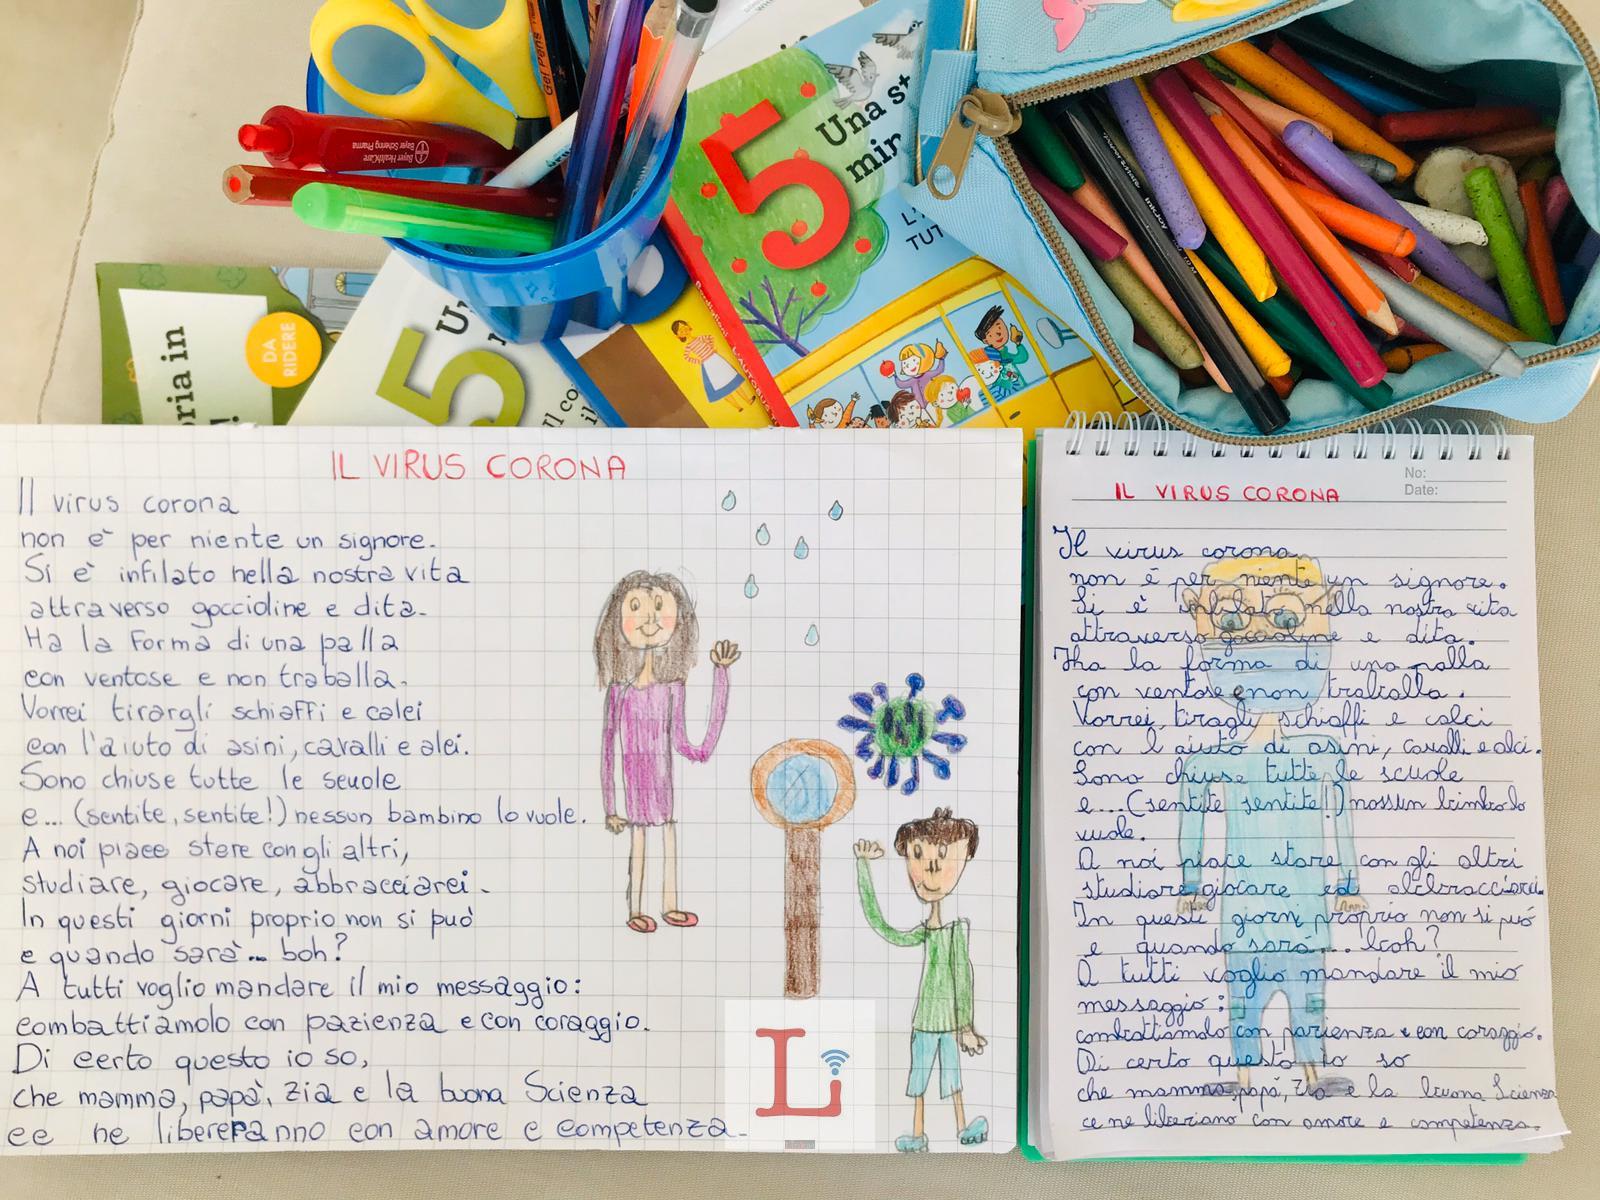 Gel Pens
Bayer HealthCare
Bayer Schering Pharma
5
Una st
mir
L'
TUT
DA
RIDERE
oria in
!
U
5
Il co
il
IL VIRUS CORONA
Il virus corona
non è per niente un signore.
Si è infilato nella nostra vita
attraverso goccioline e dita.
Ha la Forma di una palla
con ventose e non traballa.
Vorrei tirargli schiaffi e calci
con l'aiuto di asini, cavalli e alci.
Sono chiuse tutte le scuole
e... (sentite, sentite!) nessun bambino lo vuole.
A noi piace stare con gli altri,
studiare, giocare, abbracciarci.
In questi giorni proprio non si può
e quando sarà... boh?
A tutti voglio mandare il mio messaggio:
combattiamolo con pazienza e con coraggio.
Di certo questo io so,
che mamma, papà, zia e la buona Scienza
ce ne libereranno con amore e competenza.
L
No:
Date:
IL VIRUS CORONA
Il virus corona
non è per niente un signore.
Si è infilato nella nostra vita
attraverso goccioline e dita.
Ha la forma di una palla
con ventose e non traballa.
Vorrei tiragli schiaffi e calci
con l'aiuto di asini, cavalli e alci.
Sono chiuse tutte le scuole
e...(sentite sentite!) nessun bimbo lo
vuole.
A noi piace stare con gli altri
studiare, giocare ed abbracciarci.
In questi giorni proprio non si può
e quando sarà... boh?
A tutti voglio mandare il mio
messaggio:
combattiamolo con pazienza e con coraggio.
Di certo questo io so
che mamma, papà, zia e la buona Scienza
ce ne liberiano con amore e competenza.